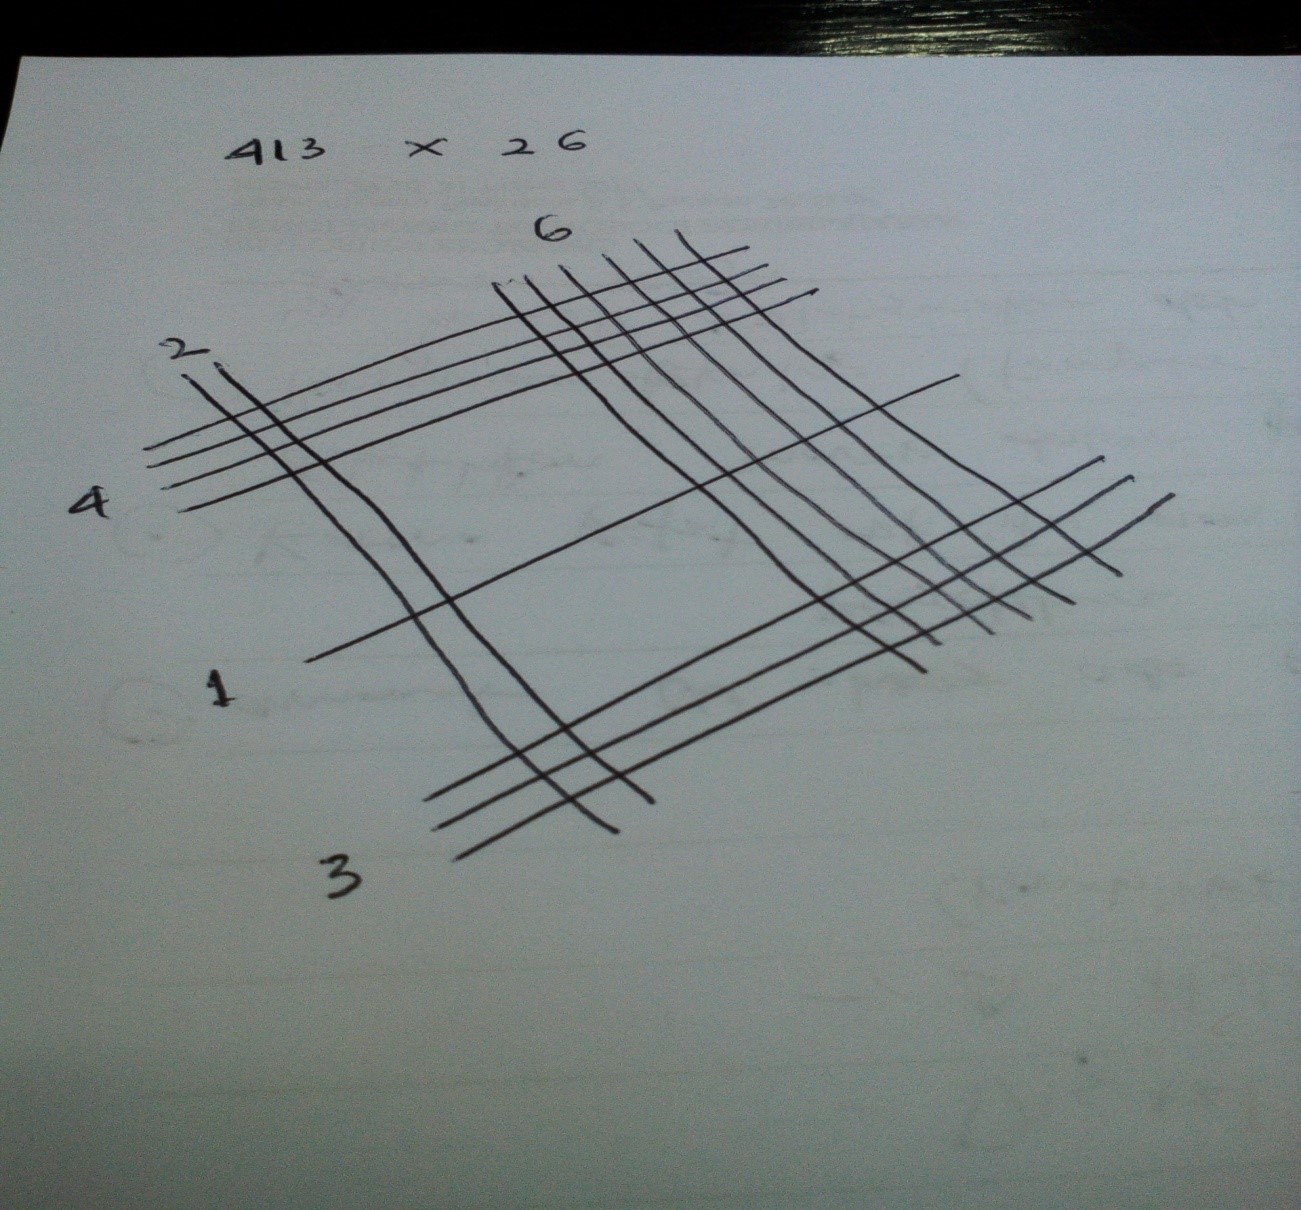 413 × 26
6
2
4
1
3